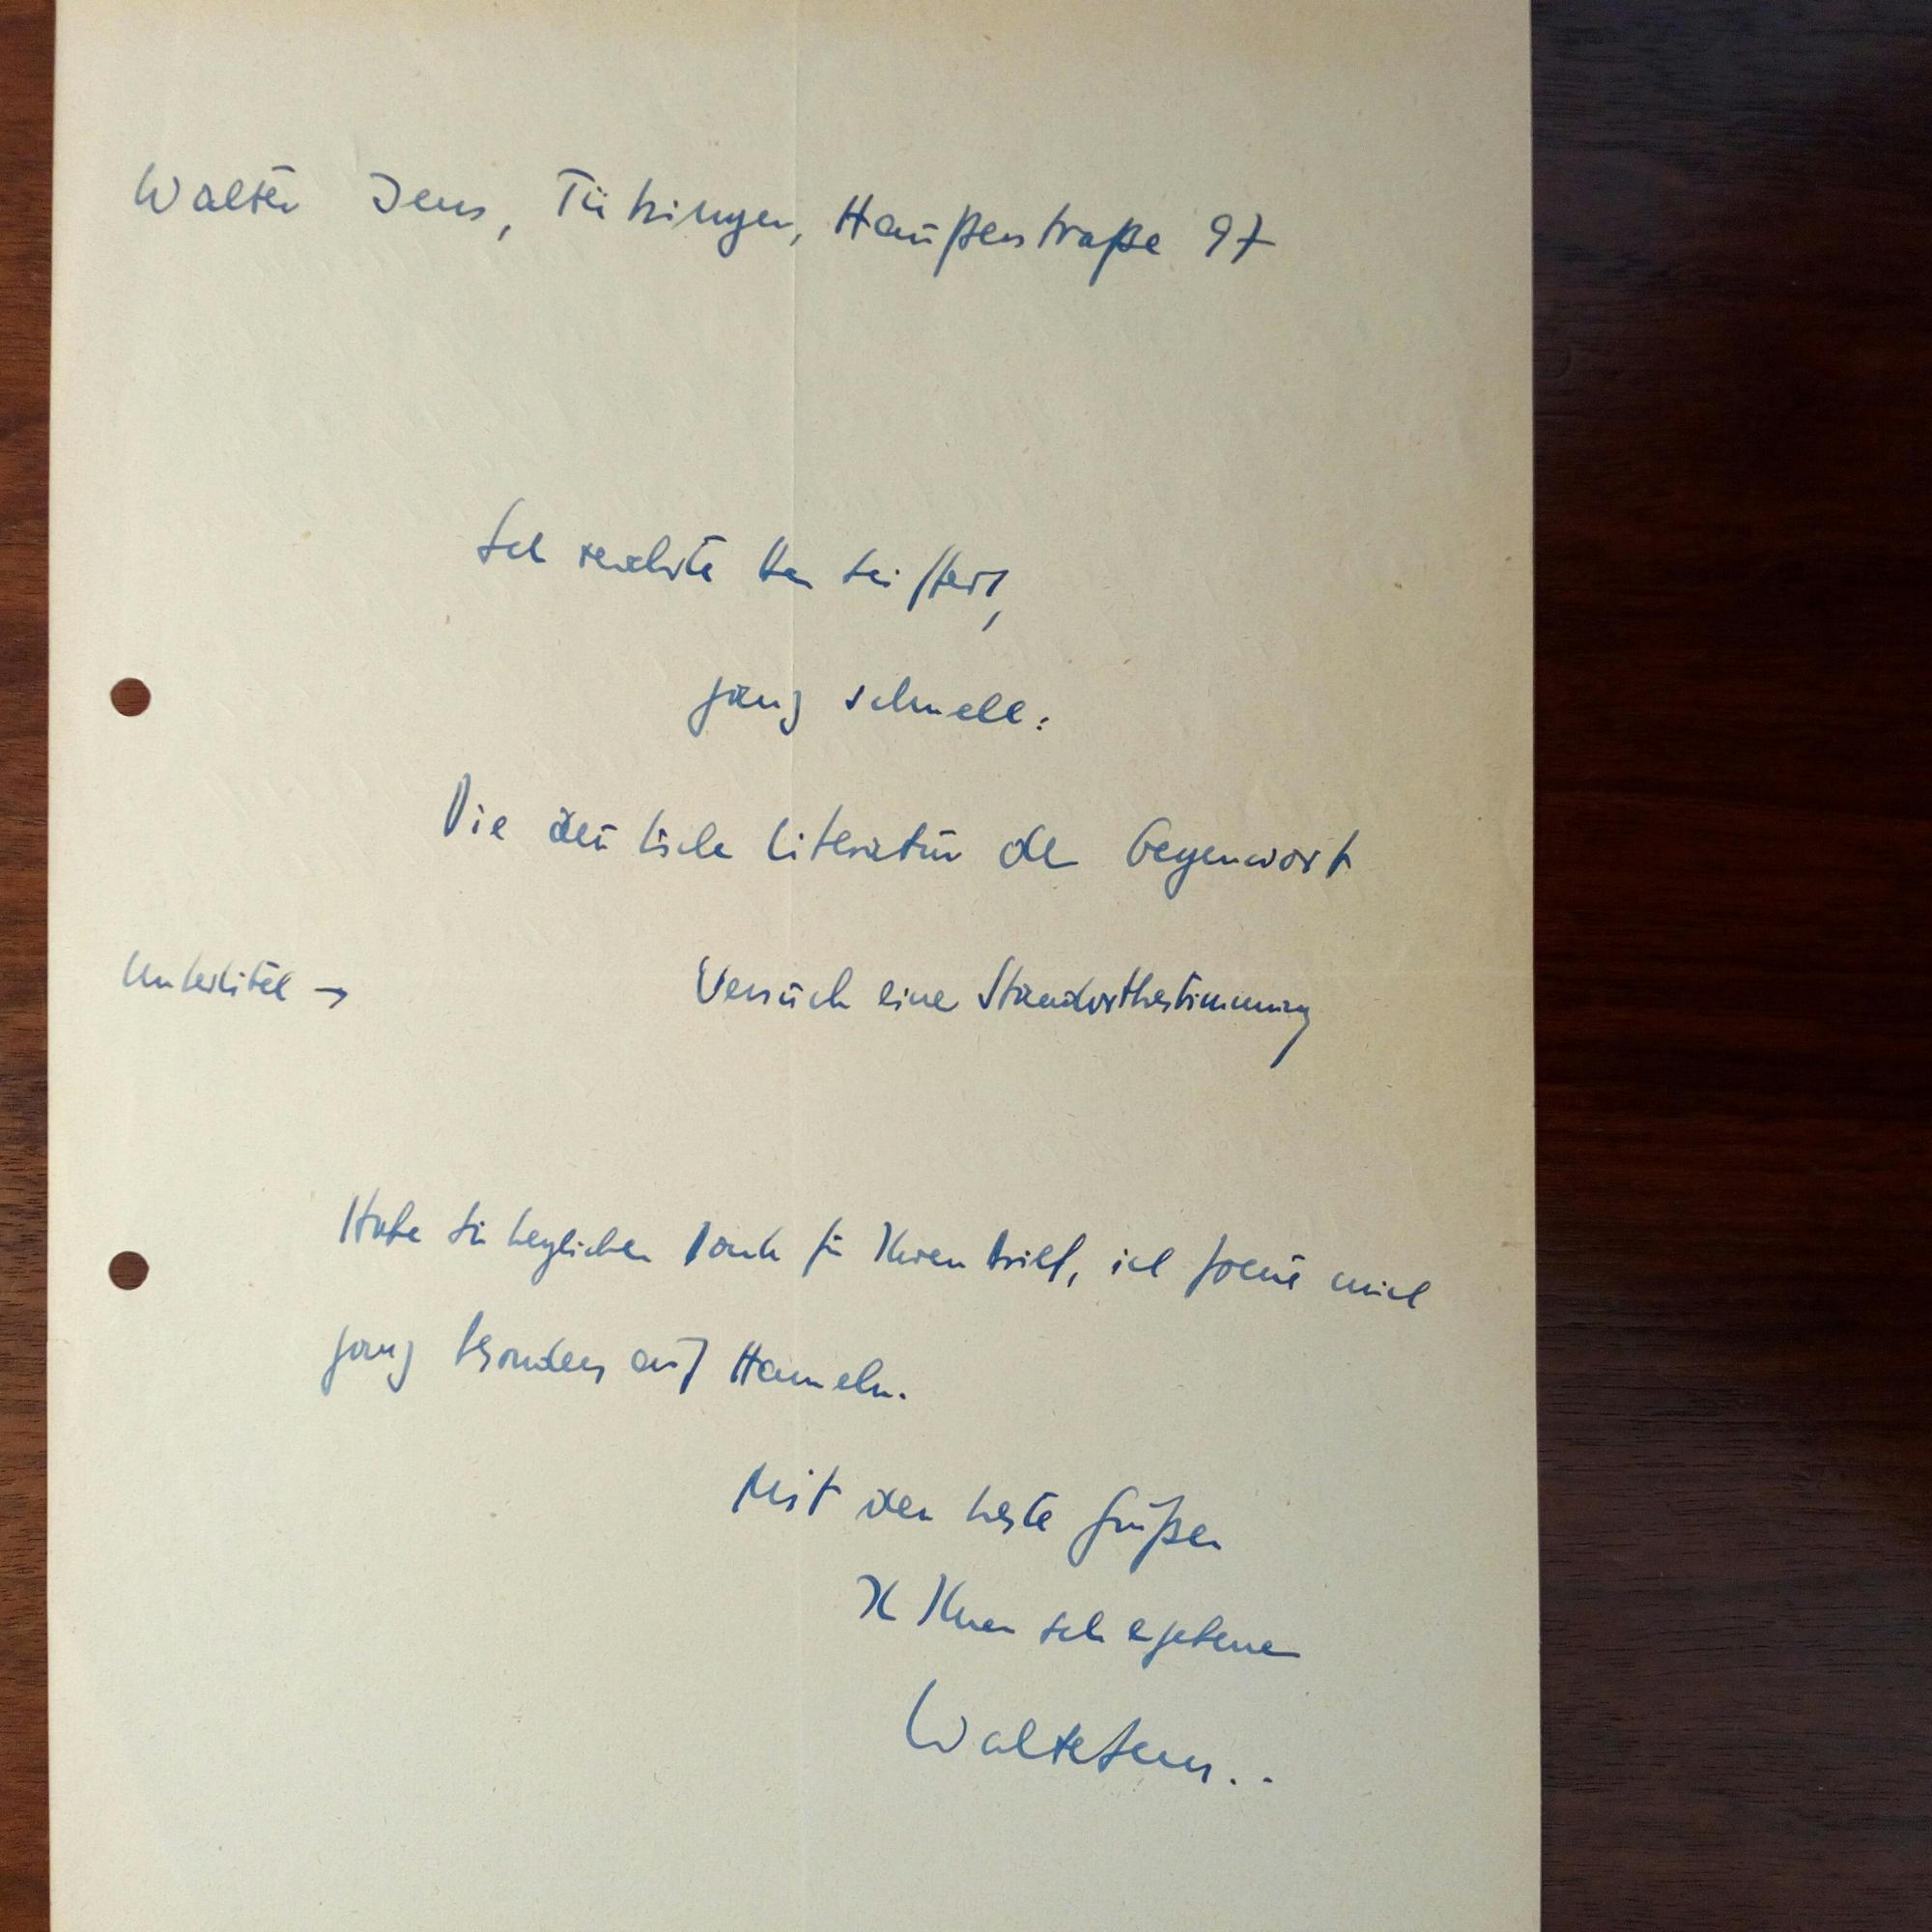 Walter Jens, Tübingen, Haußerstraße 97
Sehr verehrter Herr Seiffert,
ganz schnell:
Die deutsche Literatur der Gegenwart
Untertitel → Versuch einer Standortbestimmung
Habe Sie herzlichen Dank für Ihren Brief, ich freue mich
ganz besonders auf Hameln.
Mit den besten Grüßen
Ihnen sehr ergebener
Walter Jens..